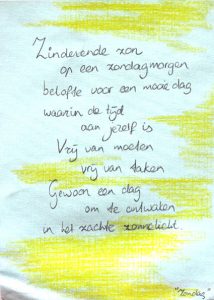 Zinderende zon
op een zondagmorgen
belofte voor een mooie dag
waarin de tijd
aan jezelf is
Vrij van moeten
vrij van taken
Gewoon een dag
om te ontwaken
in het zachte zonnelicht.
"Zondag"